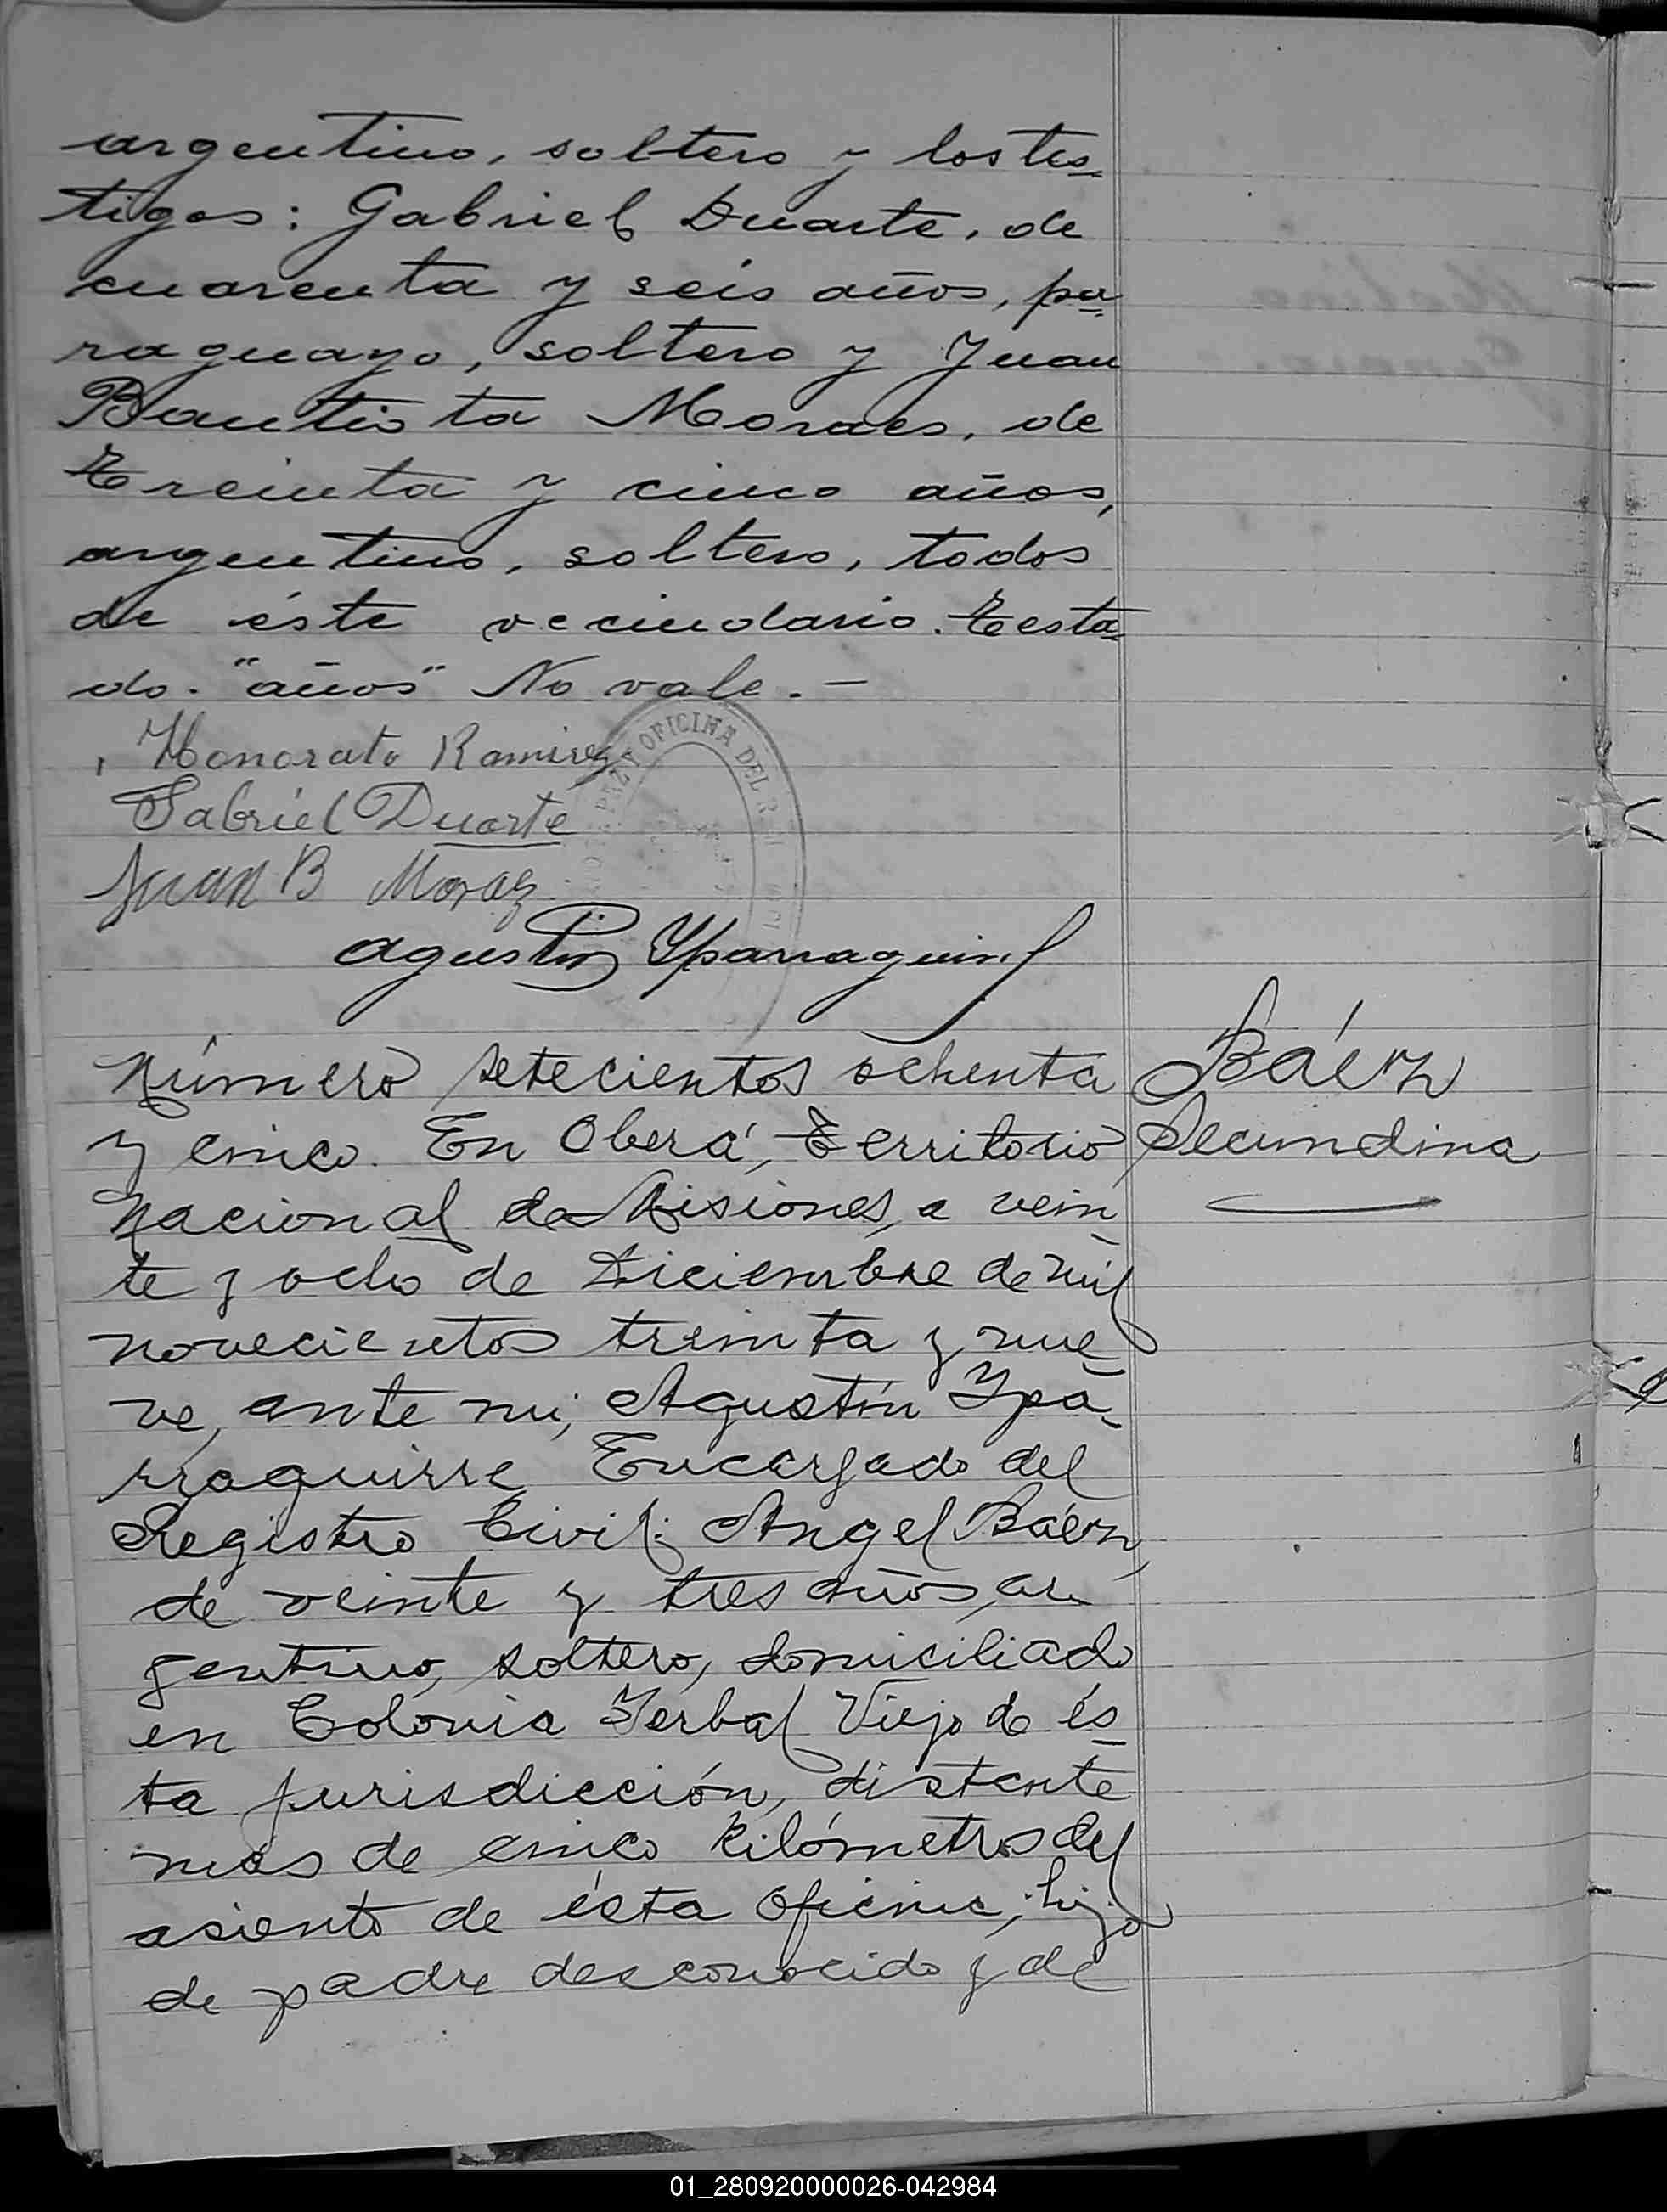 argentino, soltero y los tes-
tigos: Gabriel Duarte, de
cuarenta y seis años, pa-
raguayo, soltero y Juan
Bautista Moraes, de
treinta y cinco años,
argentino, soltero, todos
de éste vecindario. Testa-
do. "años" No vale. -
Honorato Ramirez
OFICINA DEL R
Gabriel Duarte
Juan B Moraez
Agustin Yparraguirre
Número setecientos ochenta
y cinco. En Oberá, Territorio
Nacional de Misiones, a vein-
te y ocho de Diciembre de mil
novecientos treinta y nue-
ve, ante mi, Agustín Ypa-
rraguirre, Encargado del
Registro Civil: Angel Báez,
de veinte y tres años, ar-
gentino, soltero, domiciliado
en Colonia Yerbal Viejo de és-
ta jurisdicción, distante
mas de cinco kilómetros del
asiento de ésta Oficina, hijo
de padre desconocido y de
Báez
Secundina
01_280920000026-042984